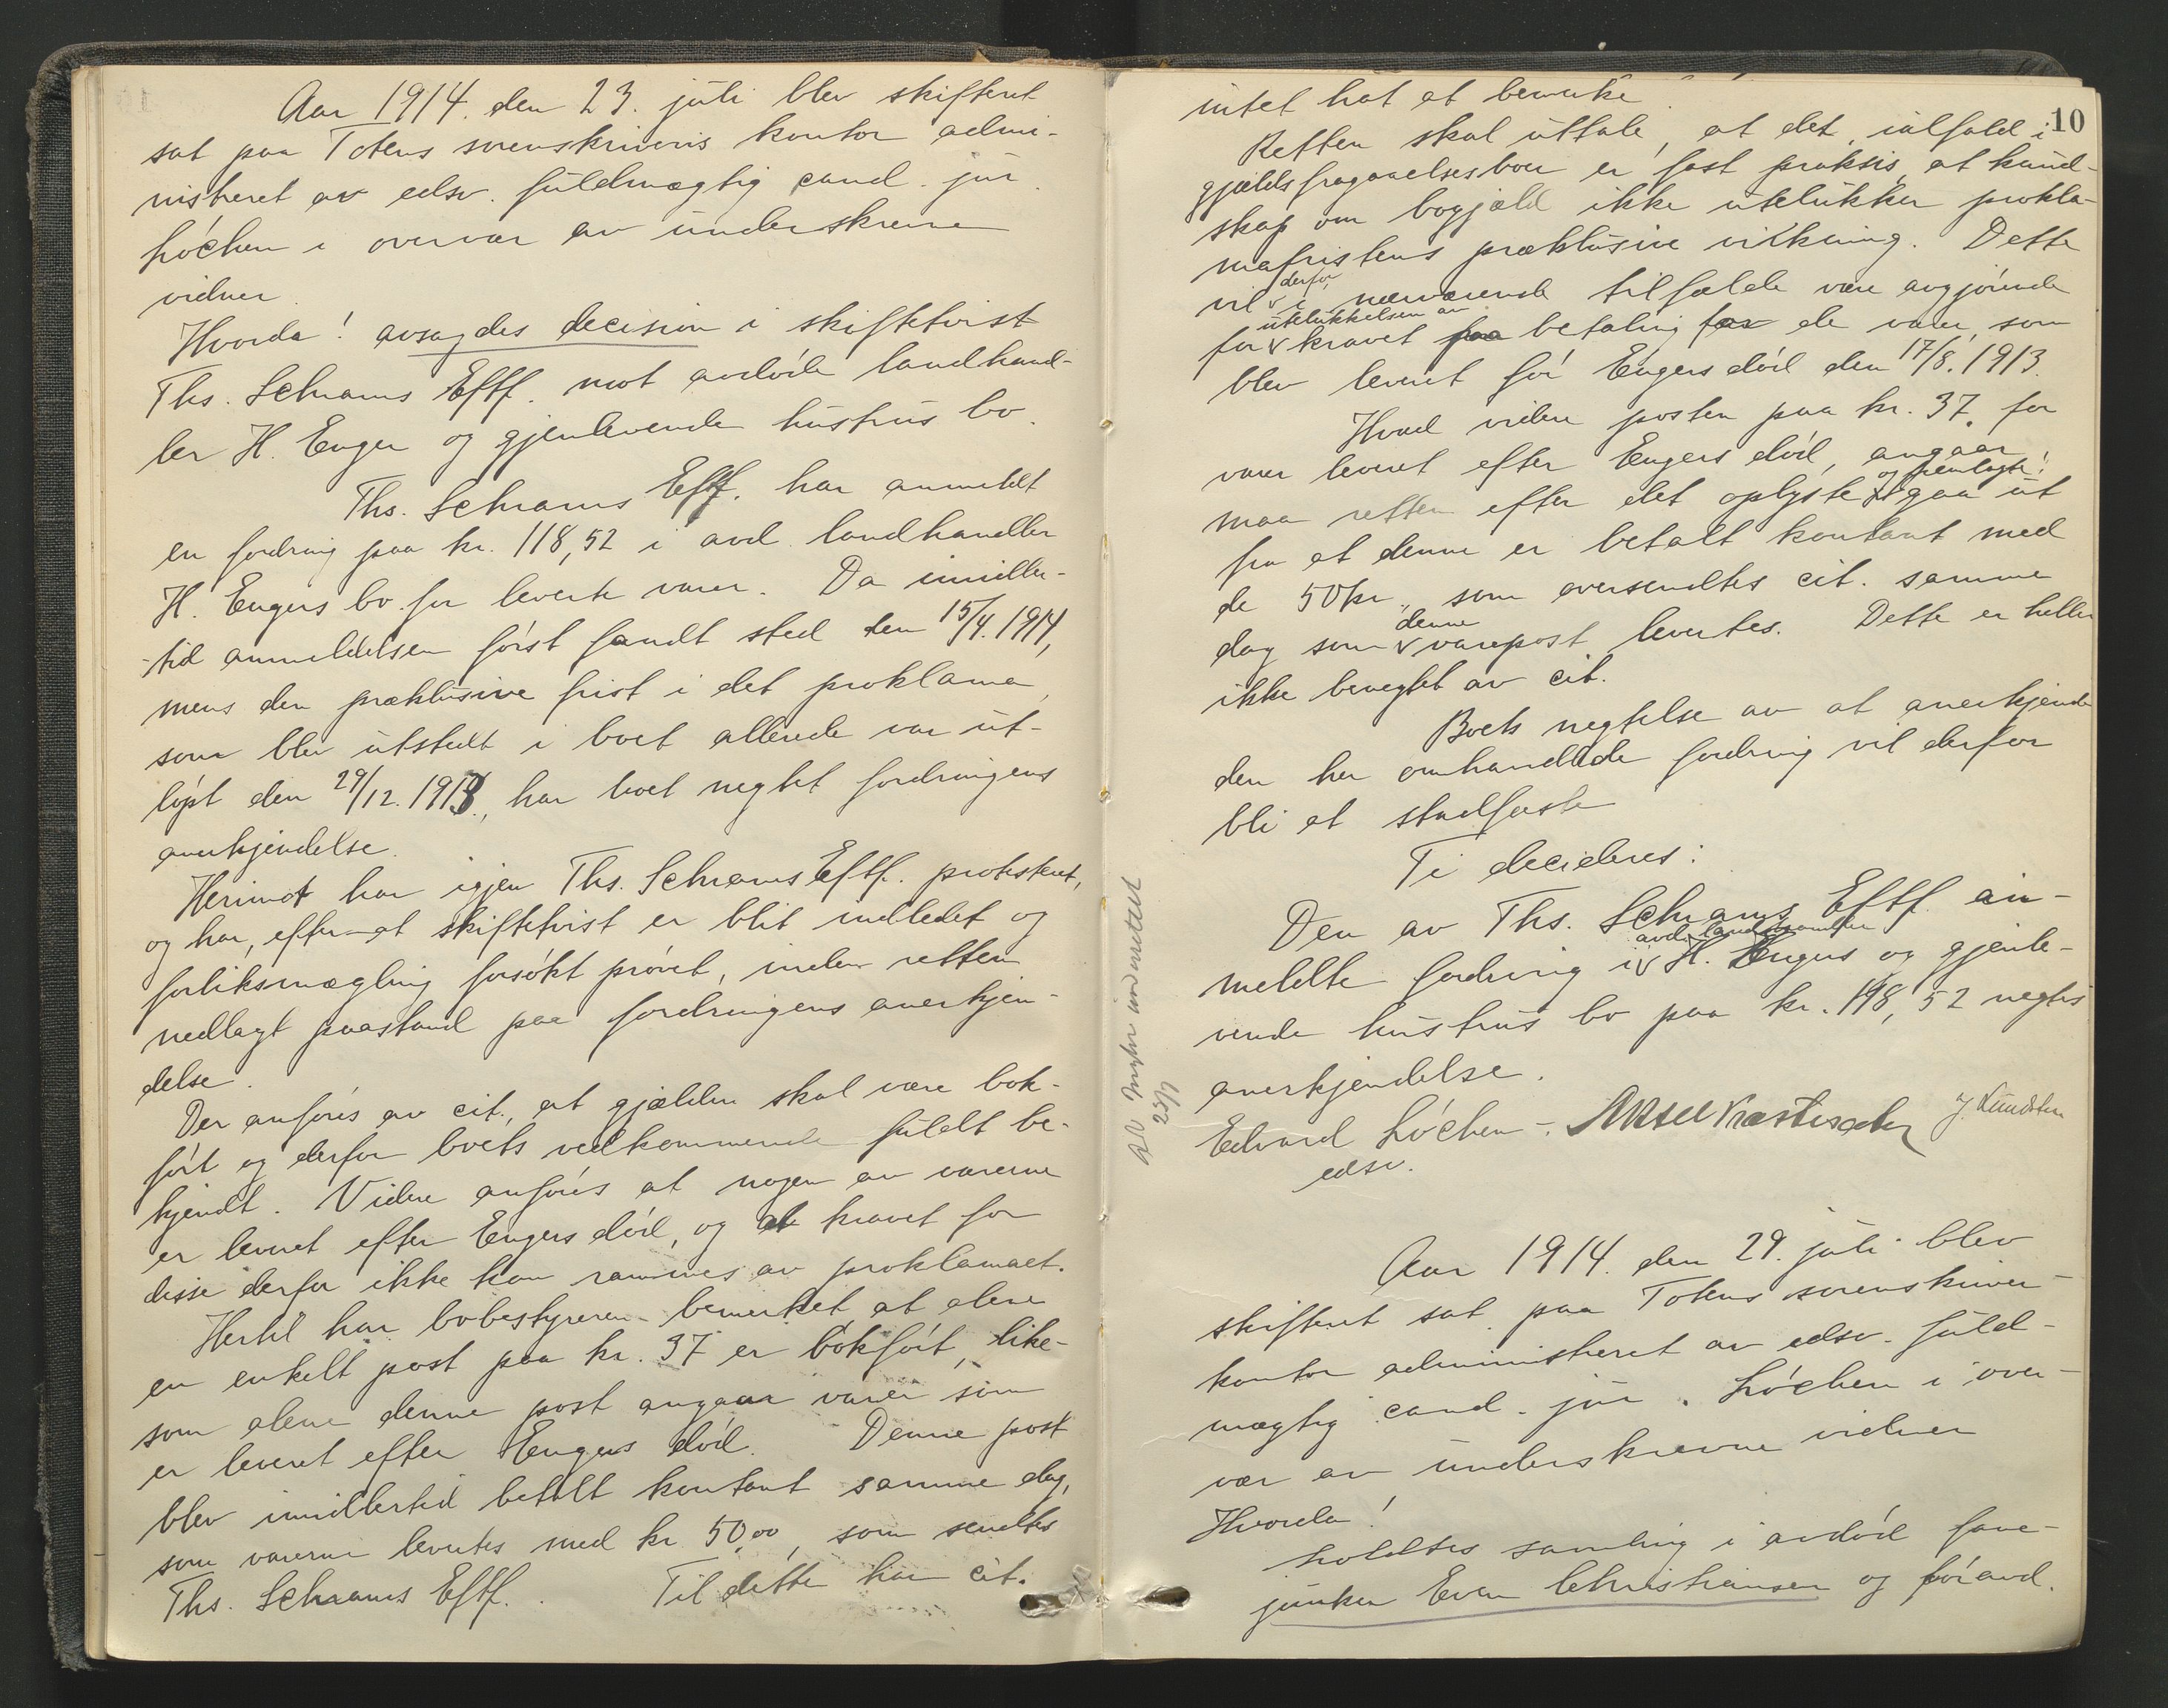 Aar 1914. den 23. juli blev skifteret
sat paa Totens sorenskriveris kontor admi-
nistreret av edsv. fuldmægtig cand. jur.
Löchen i overvær av underskrevne
vidner.
Hvorda! avsagdes decision i skiftetvist
Ths. Schrams Eftf. mot avdöde landhand-
ler H. Enger og gjenlevende hustrus bo.
Ths. Schrams Eftf. har anmeldt
en fordring paa kr. 118,52 i avd. landhandler
H. Engers bo for leverte varer. Da imidler-
tid anmeldelsen först fandt sted den 15/4. 1914,
mens den præklusive frist i det proklama,
som blev utstedt i boet allerede var ut-
löpt den 29/12. 1913, har boet negtet fordringens
anerkjendelse.
Herimot har igjen Ths. Schrams Eftf. protestert,
og har, efter at skiftetvist er blit indledet og
forliksmægling forsökt prövet, inden retten
nedlagt paastand paa fordringens anerkjen-
delse.
Der anföres av cit., at gjælden skal være bok-
fört og derfor boets vedkommende fuldt be-
kjendt. Videre anföres at nogen av varerne
er leveret efter Engers död, og at kravet for
disse derfor ikke kan rammes av proklamaet.
Hertil har bobestyreren bemerket at alene
en enkelt post paa kr. 37 er bokfört, like-
som alene denne post angaar varer som
er leveret efter Engers död. Denne post
blev imidlertid betalt kontant samme dag,
som varerne levertes med kr. 50,00, som sendtes
Ths. Schrams Eftf. Til dette har cit.
10
intet hat at bemerke.
Retten skal uttale, at det, ialfald i
gjældsfragaaelsesboer er fast praksis, at kund-
skap om bogjæld ikke utelukker prokla-
mafristens præklusive virkning. Dette
derfor
vil i nærværende tilfælde være avgjörende
utelukkelsen av
for kravet paa betaling for de varer, som
blev leveret för Engers död den 17/8. 1913.
Hvad videre posten paa kr. 37, for
varer leveret efter Engers död, angaar
og fremlagte
maa retten efter det oplyste gaa ut
fra at denne er betalt kontant med
de 50 kr., som oversendtes cit. samme
denne
dag som varepost levertes. Dette er heller
ikke benegtet av cit.
Boets negtelse av at anerkjende
den her omhandlede fordring vil derfor
bli at stadfæste
Ti decideres:
Den av Ths. Schrams Eftf. an-
avd. landhandler
meldte fordring i H. Engers og gjenle-
vende hustrus bo paa kr. 118,52 negtes
anerkjendelse.
Edvard Löchen
edsv.
J. Lundsten
23/7
Aar 1914. den 29. juli blev
skifteret sat paa Totens sorenskriver-
kontor administreret av edsv. fuld-
mægtig cand. jur. Löchen i over-
vær av underskrevne vidner
Hvorda!
holdtes samling i avdöd fane-
junker Even Christiansen og föravd.